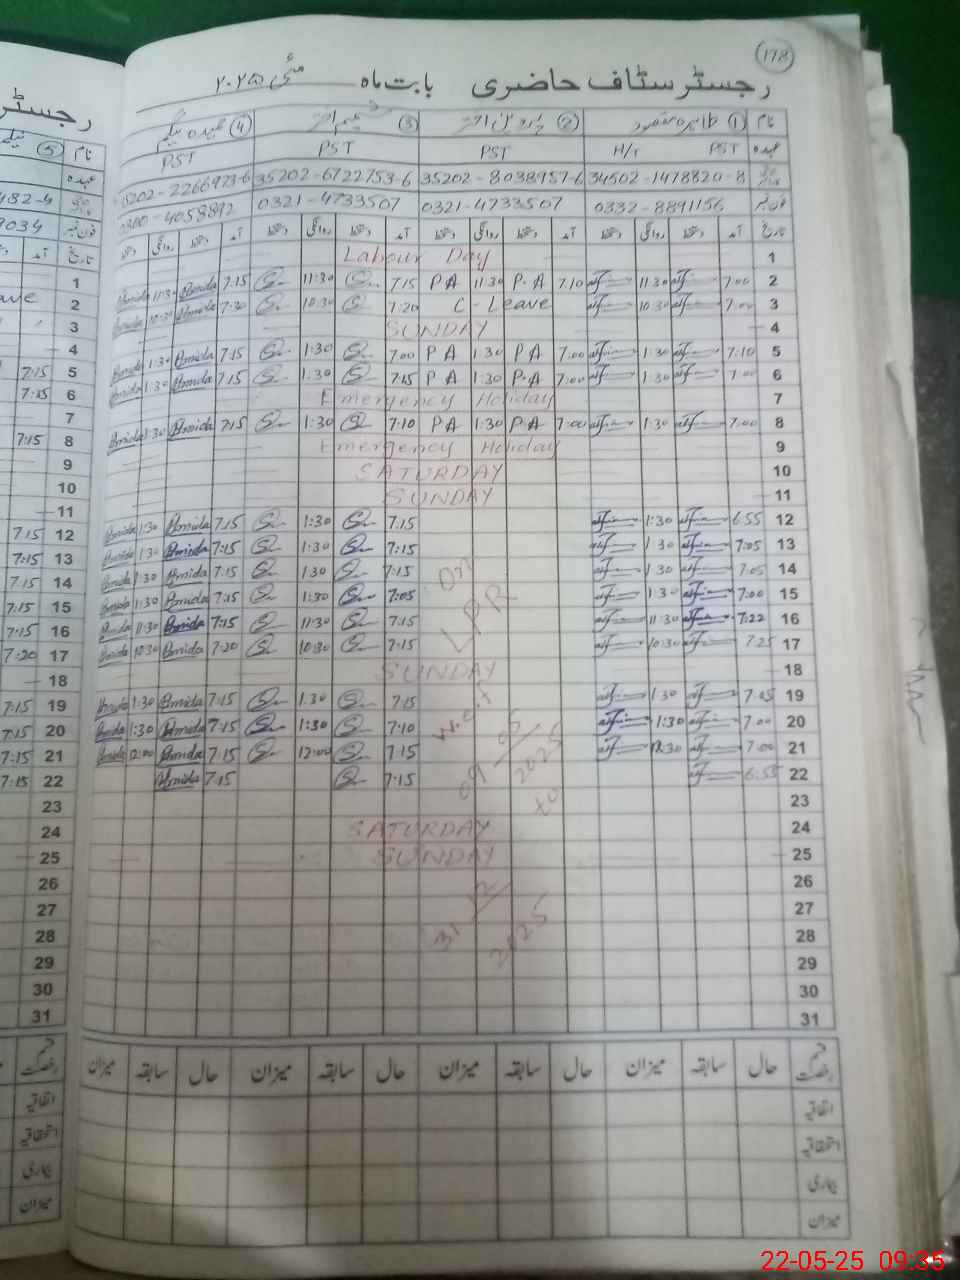 178
رجسٹر سٹاف حاضری بابت ماہ مئی ۲۰۲۵
نام ① طاہرہ مقصود ② پروین اختر ③ شمیم اختر ④ عبیدہ بیگم
عہدہ PST H/T PST PST PST
34502-1478820-8 35202-8038957-6 35202-6722753-6 35202-2266973-6
فون نمبر 0332-8891156 0321-4733507 0321-4733507 0300-4058892
تاریخ آمد دستخط روانگی دستخط آمد دستخط روانگی دستخط آمد دستخط روانگی دستخط آمد دستخط روانگی دستخط
1 Labour Day
2 7:00 11:30 7:10 P.A 11:30 PA 7:15 11:30 7:15 Bmida 11:30 Bmida
3 7:00 10:30 C-Leave 7:20 10:30 7:20 Bmida 10:30 Bmida
4 SUNDAY
5 7:10 1:30 7:00 PA 1:30 PA 7:00 1:30 7:15 Bmida 1:30 Bmida
6 7:00 1:30 7:00 P.A 1:30 PA 7:15 1:30 7:15 Bmida 1:30 Bmida
7 Emergency Holiday
8 7:00 1:30 7:00 PA 1:30 PA 7:10 1:30 7:15 Bmida 1:30 Bmida
9 Emergency Holiday
10 SATURDAY
11 SUNDAY
12 6:55 1:30 7:15 1:30 7:15 Bmida 1:30 Bmida
13 7:05 1:30 7:15 1:30 7:15 Bmida 1:30 Bmida
14 7:05 1:30 7:15 1:30 7:15 Bmida 1:30 Bmida
15 7:00 1:30 7:05 1:30 7:15 Bmida 1:30 Bmida
16 7:22 11:30 7:15 11:30 7:15 Bmida 11:30 Bmida
17 7:25 10:30 7:15 10:30 7:20 Bmida 10:30 Bmida
18 SUNDAY
19 7:05 1:30 7:15 1:30 7:15 Bmida 1:30 Bmida
20 7:00 1:30 7:10 1:30 7:15 Bmida 1:30 Bmida
21 7:00 12:30 7:15 12:00 7:15 Bmida 12:00 Bmida
22 6:55 7:15 7:15 Bmida
23
24 SATURDAY
25 SUNDAY
26
27
28
29
30
31
On
LPR
w.e.f
09/05/2025
to
31/12/2025
قسم رخصت حال سابقہ میزان حال سابقہ میزان حال سابقہ میزان حال سابقہ میزان
اتفاقیہ
استحقاقیہ
بیماری
میزان
رجسٹر
نام ⑤
عہدہ
482-4
فون نمبر 9034
تاریخ آمد
1
2 ave
3
4
5 7:15
6 7:15
7
8 7:15
9
10
11
12 7:15
13 7:15
14 7:15
15 7:15
16 7:15
17 7:20
18
19 7:15
20 7:15
21 7:15
22 7:15
23
24
25
26
27
28
29
30
31
قسم رخصت
اتفاقیہ
استحقاقیہ
بیماری
میزان
22-05-25 09:35